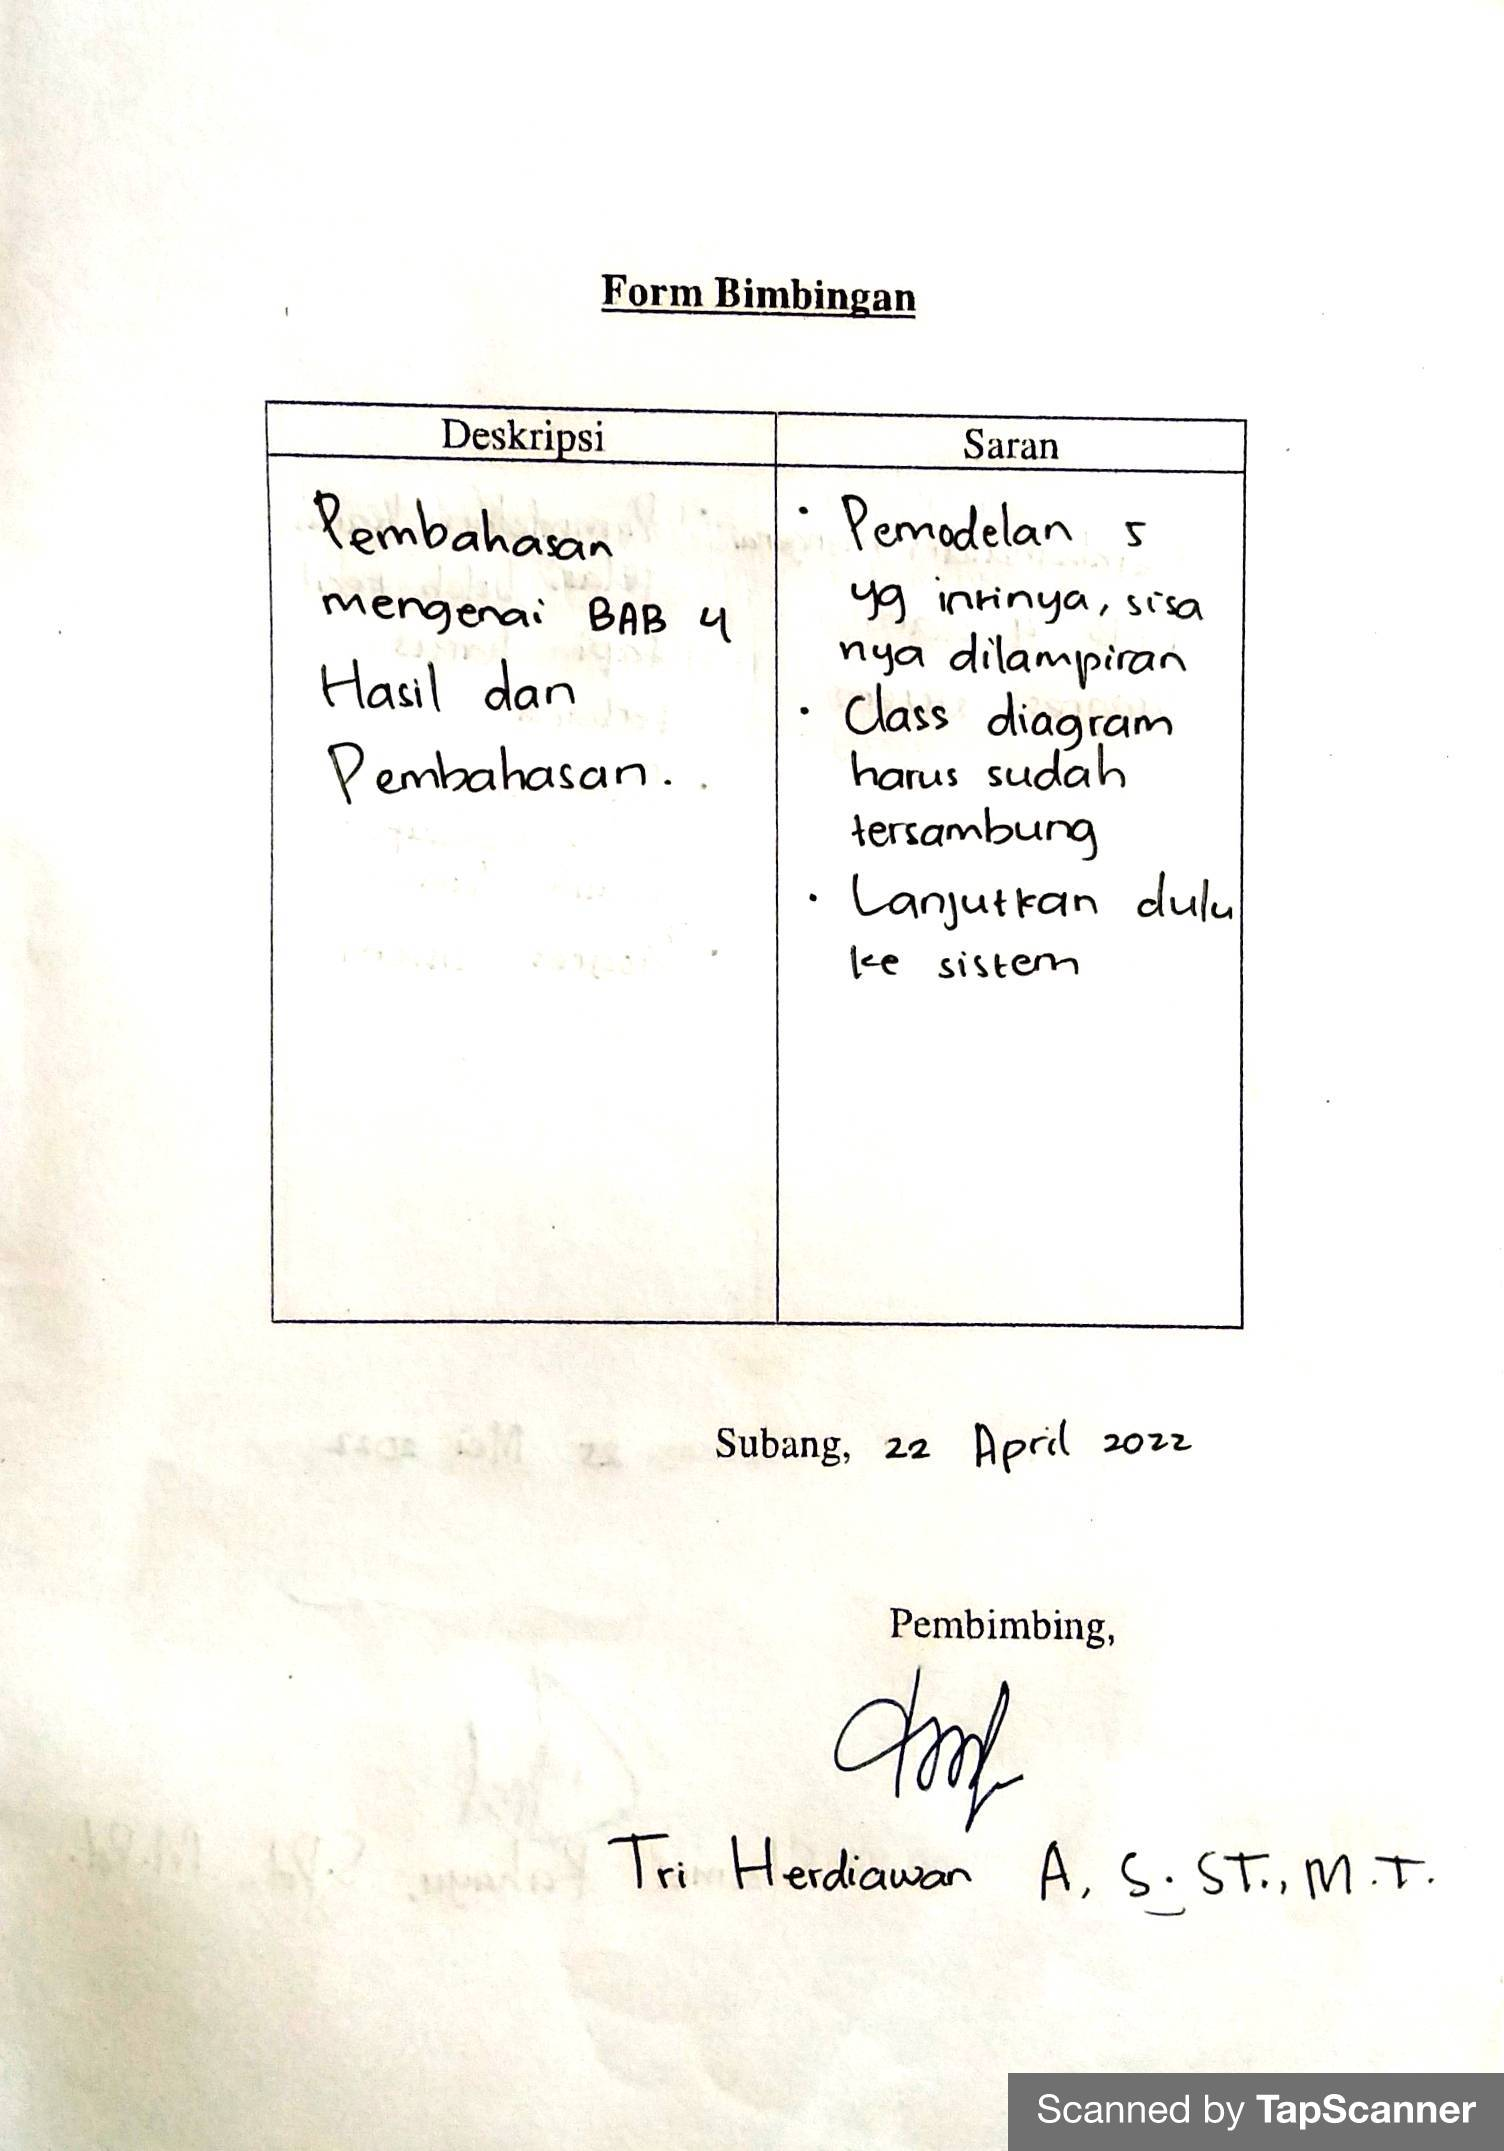 Form Bimbingan
Deskripsi
Saran
Pembahasan
mengenai BAB 4
Hasil dan
Pembahasan.
· Pemodelan 5
yg intinya, sisa
nya dilampiran
· Class diagram
harus sudah
tersambung
· Lanjutkan dulu
ke sistem
Subang, 22 April 2022
Pembimbing,
Tri Herdiawan A, S.ST., M.T.
Scanned by TapScanner